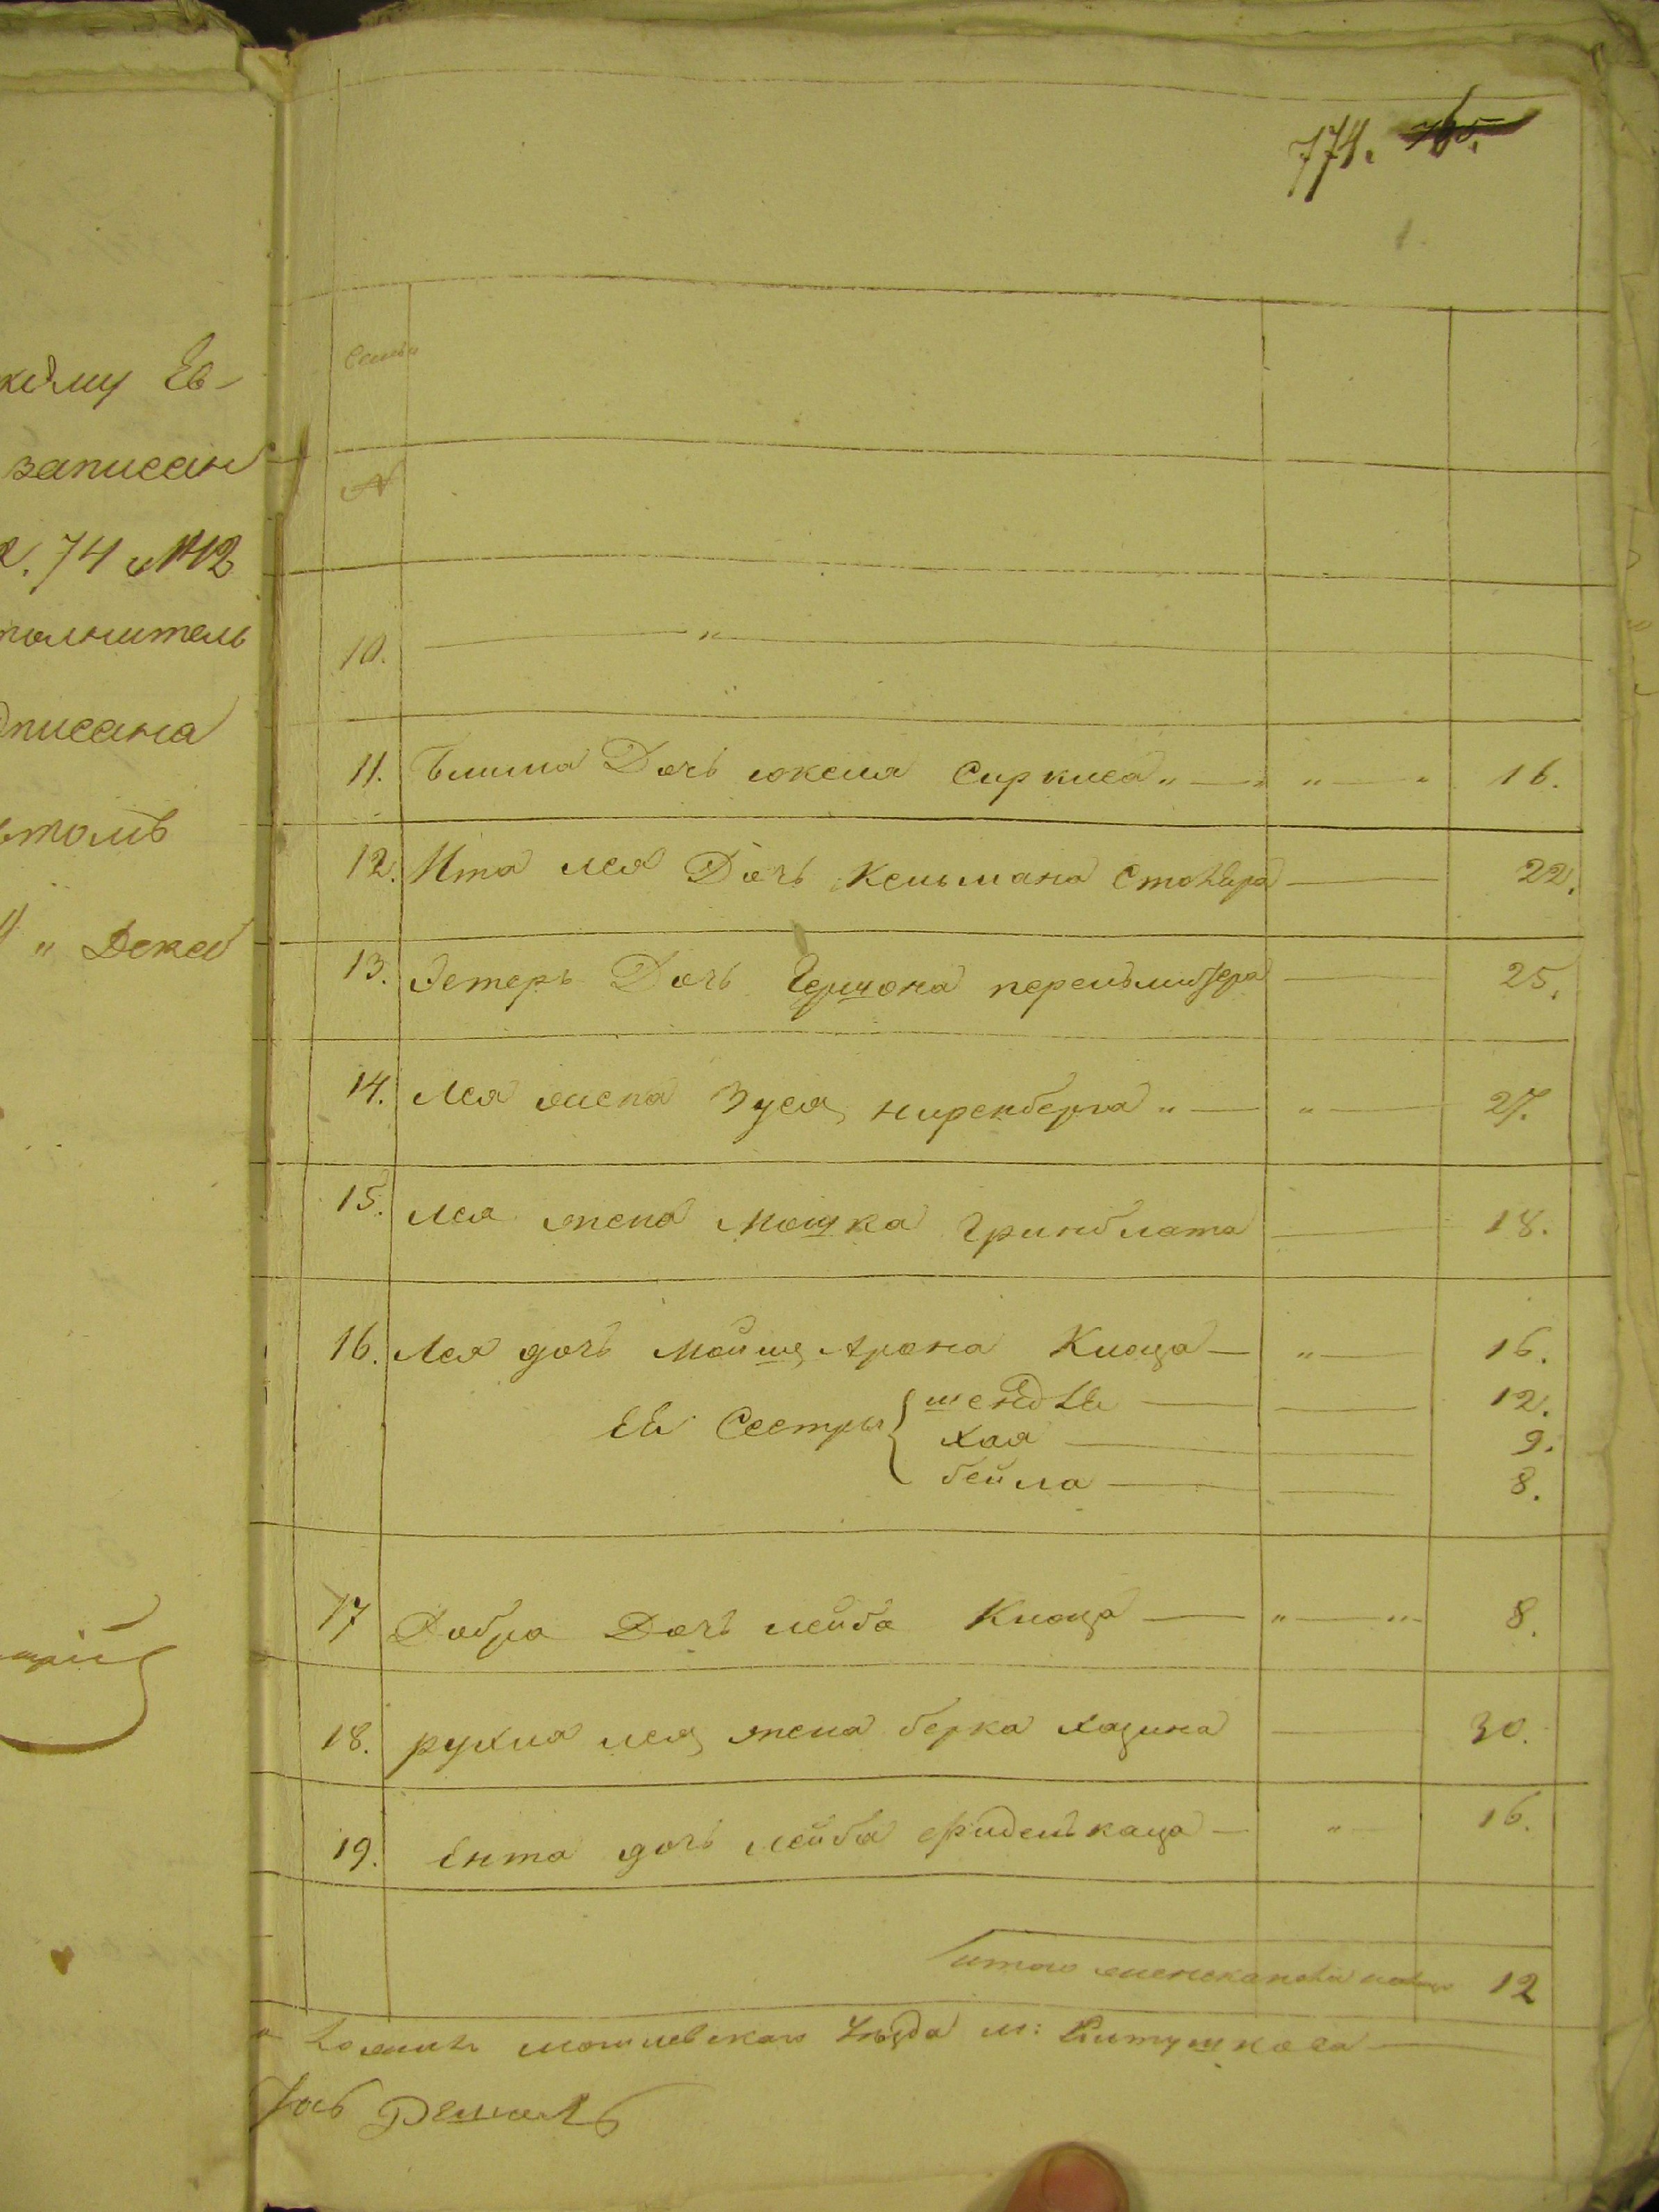 774. 765.
кому Ев-
записан
74 и 112
полнитель
дписана
" Декаб
Семьи
№
10. "
11. Блима Дочь юкеля Сиркиса " " 16.
12. Ита лея Дочь Кельмана Столяра 22.
13. Эстеръ Дочь Гершона перельмутера 25.
14. Лея жена Зуся ниренберга " " 27.
15. Лея жена Мошка Гринблата 18.
16. Лея дочь Мойше Арона Кноца " 16.
Ей Сестры { шендля 12.
хая 9.
бейла 8.
17 Добра Дочь лейба Кноца " " 8.
18. рухля лея жена берка хазина 30.
19. Ента дочь лейба фиделькаца " 16.
итого женска пола 12
могилевскаго Уезда м: